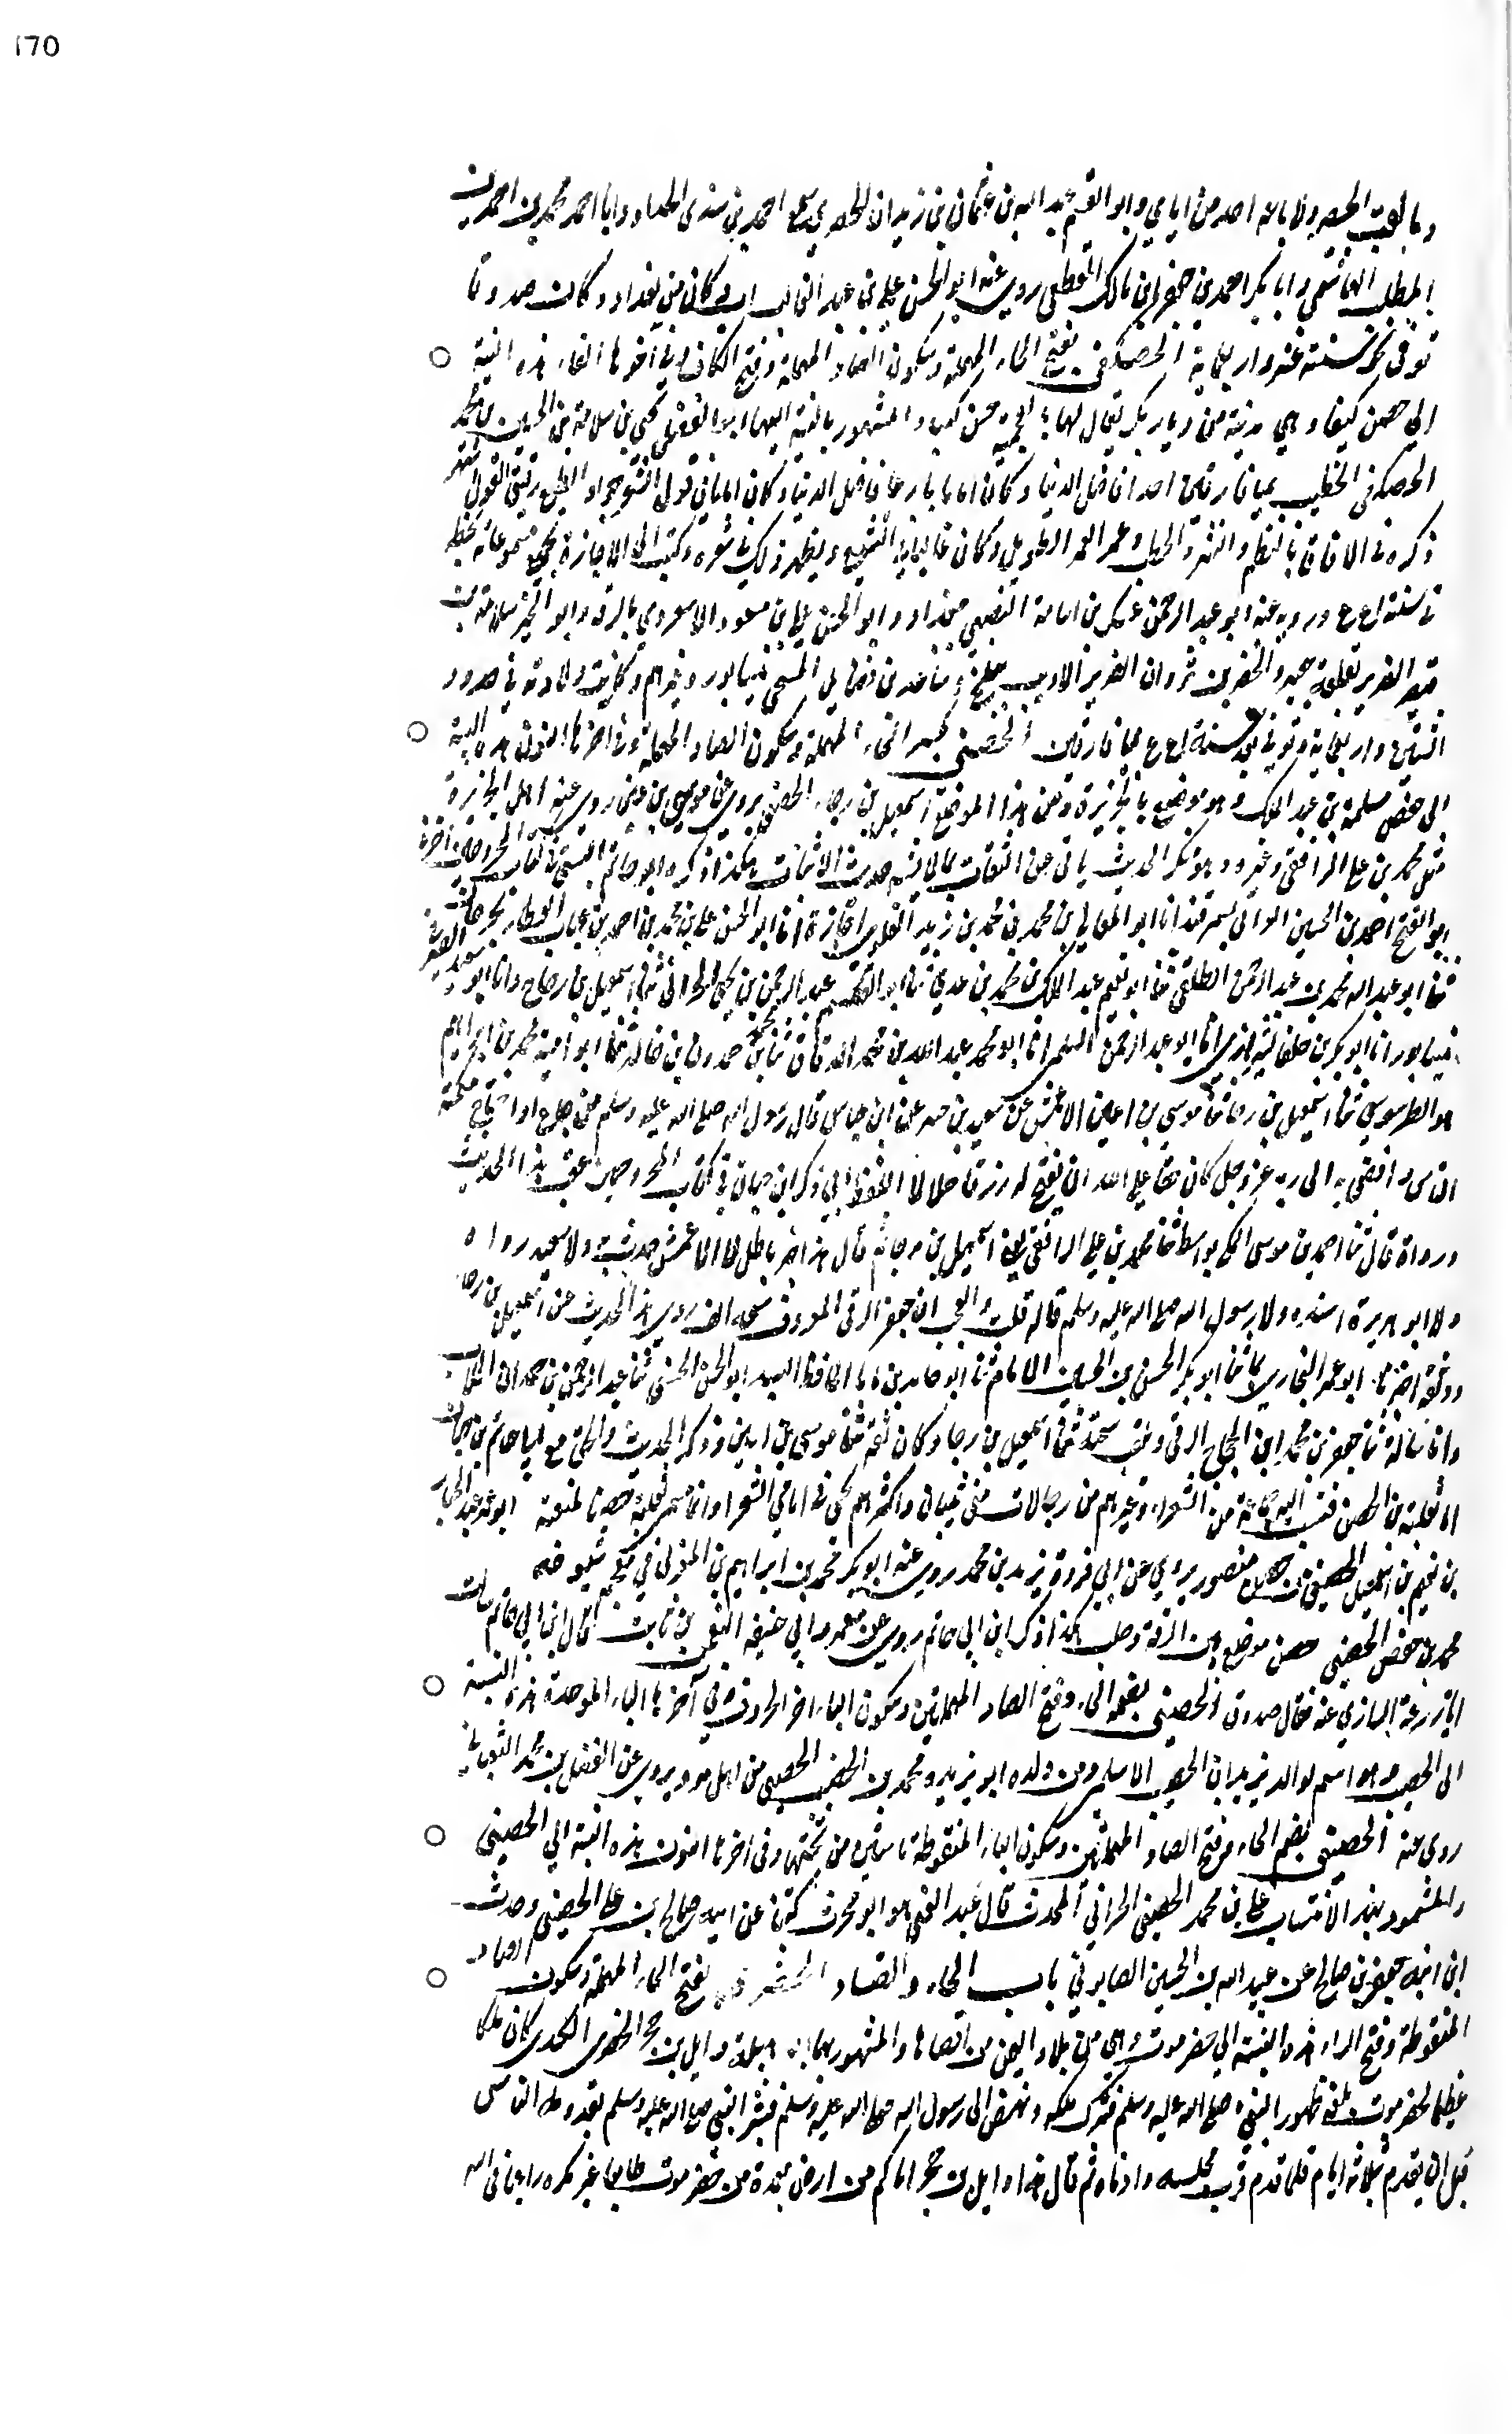 170
وما لقبت الحصري ولا باله احد من ايامي وابو القسم عبد الله بن عثمان بن زيدان الحصري سمع احمد بن سندي الحداد وابا احمد محمد بن احمد بن
المطلب الهاشمي وابا بكر احمد بن جعفر بن مالك القطيعي روى عنه ابو الحسن علي بن عبد الغالب كان من بغداد وكان صدوقا
توفى نحو سنة عشر واربعماية الحصكفي بفتح الحاء المهملة وسكون الصاد المهملة وفتح الكاف وفي آخرها الفاء هذه النسبة
الى حصن كيفا وهي مدينة من ديار بكر يقال لها بالعجمية حسن كيبا والمشهور بالنسبة اليها ابو الفضل يحيى بن سلامة بن الحسين بن محمد
الحصكفي الخطيب بميافارقين احد افاضل الدنيا وكان اماما بارعا فاضل الدنيا وكان اماما في قول الشعر جواد الطبع رقيق القول اشتهر
ذكره في الافاق بالنظم والنثر والخطب وعمر العمر الطويل وكان غاليا في التشيع ويظهر ذلك في شعره وكتب الي الاجازة بجميع مسموعاته بخطه
في سنة اع ع وروى عنه ابو عبد الرحمن عسكر بن اسامة النصيبي ببغداد وابو الحسن علي بن مسعود الاسعردي بالرقة وابو الخير سلامة بن
قيصر الضرير بقلعة جعبر والخضر بن ثروان الضرير الاديب ببلخ وساعد بن فضايل المنبجي بنيسابور وغيرهم وكانت ولادته في حدود
الستين واربعماية وتوفي في سنة اع ع بميافارقين الحصني بكسر الحاء المهملة وسكون الصاد المهملة وفي اخرها النون هذه النسبة
الى حصن مسلمة بن عبد الملك وهو موضع بالجزيرة ومن هذا الموضع اسمعيل بن رجاء الحصني يروي عن موسى بن اعين روى عنه اهل الجزيرة
مثل محمد بن علي الرافقي وغيره وهو منكر الحديث ياتي عن الثقات بما لا يشبه حديث الاثبات هكذا ذكره ابو حاتم البستي في كتاب المجروحين اخبرنا
ابو الفتح احمد بن الحسين الواني بسمرقند انا ابو المعالي محمد بن محمد بن زيد العلوي اجازة انا ابو الحسن علي بن محمد بن احمد بن حباب العطار بجرجان
ثنا ابو عبد الله محمد بن عبد الرحمن الطلقي ثنا ابو نعيم عبد الملك بن محمد بن عدي ثنا ابو القسم عبد الرحمن بن يحيى الحراني ثنا اسمعيل بن رجاح وانا ابو سعيد الصيرفي
بنيسابور انا ابو بكر بن خلف الشيرازي انا ابو عبد الرحمن السلمي انا ابو محمد عبد الله بن محمد الدقاق ثنا محمد بن حمدون بن خالد ثنا ابو امية محمد بن ابراهيم
هو الطرسوسي ثنا اسمعيل بن رجاء ثنا موسى بن اعين الاعمش عن سعيد بن جبير عن ابن عباس قال رسول الله صلى الله عليه وسلم من جاع او احتاج فكتمه
الناس وافضى به الى ربه عز وجل كان حقا على الله ان يفتح له رزقا حلالا اللفظ الي ذكر ابن حبان في كتاب المجروحين عقب هذا الحديث
ورواة قال ثنا احمد بن موسى المكي بواسط ثنا محمد بن علي الرافقي ثنا اسمعيل بن رجا ثم قال هذا خبر باطل لا الاعمش حدث به ولا سعيد رواه
ولا ابو هريرة اسنده ولا رسول الله صلى الله عليه وسلم قاله قلت والعجب ان جعفر الرقي المعروف بسجة الف روى هذا الحديث عن اسمعيل بن رجاء
ووثقه اخبرنا ابو عمر البخاري ثنا ابو بكر الحسن بن الحسين الامام ثنا ابو حامد بن ماما الحافظ السيد ابو الحسن الحسني ثنا عبد الرحمن بن حمدان الجلاب
وانا سألته ثنا جعفر بن محمد ابن الحجاج الرقي ولقبه سجة ثنا اسمعيل بن رجا وكان ثقة ثنا موسى بن اعين وذكر الحديث والحق مع ابي حاتم بن حبان
الا ثعلبة بن الحصن فنسب اليه جماعة من الشعراء وغيرهم من رجالات بني شيبان واكثرهم يجي في اسامي الشعراء وانما سمي ثعلبة حصنا لمنعته ابو عمر عبد الجبار
بن نعيم بن اسمعيل الحصني من حصن منصور يروي عن ابي فروة يزيد بن محمد روى عنه ابو بكر محمد بن ابراهيم بن المقري في معجم شيوخه
محمد بن حفص الحصني حصن موضع بين الرقة وحلب هكذا ذكر ابن ابي حاتم روى عن معمر وابي حنيفة النعمن بن ثابت قال ابن ابي حاتم سالت
ابا زرعة الرازي عنه فقال صدوق الحصيبي بضم الحاء وفتح الصاد المهملتين وسكون الياء اخر الحروف وفي آخرها الباء الموحدة هذه النسبة
الى الحصيب وهو اسم لوالد بريدة بن الحصيب الاسلمي ومن ولده ابو بريدة محمد بن الحصيب الحصيبي من اهل مرو ويروى عن الفضل بن محمد الشعراني
روى عنه الحصيني بضم الحاء وفتح الصاد المهملتين وسكون الياء المنقوطة باثنتين من تحتها وفي اخرها النون هذه النسبة الي الحصيني
والمشهور بهذا الانتساب علي بن محمد الحصيني الحراني المحدث قال عبد الغني هو ابو محرث كتبنا عن ابيه صالح بن علي الحصيني وحدث
ابن ابنه جعفر بن صالح عن عبيد الله بن الحسين الصابوني باب الحاء والضاد الحضرمي بفتح الحاء المهملة وسكون الضاد
المنقوطة وفتح الراء هذه النسبة الي حضرموت وهي من بلاد اليمن من اقصاها والمشهور بهما وايل بن حجر الحضرمي الكندي كان ملكا
عظيما لحضرموت بلغه ظهور النبي صلى الله عليه وسلم فترك ملكه ونهض الى رسول الله صلى الله عليه وسلم فبشر النبي صلى الله عليه وسلم بقدومه الناس
قبل ان يقدم بثلاثة ايام فلما قدم قرب مجلسه وادناه ثم قال هذا وايل بن حجر اتاكم من ارض بعيدة من حضرموت طايعا غير مكره راغبا في الله